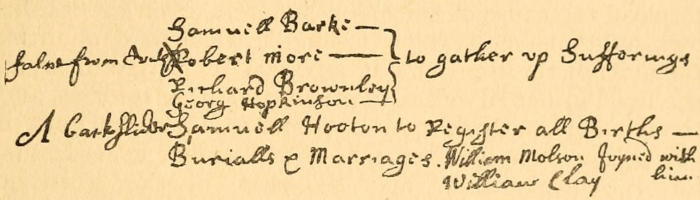 Samuell Barke
falne from truth Robert more to gather up Sufferings
Richard Brownley
Georg Hopkinson
A backslider Samuell Hooton to Register all Births
Burialls & Marriages. William Molson Joyned with him
William Clay